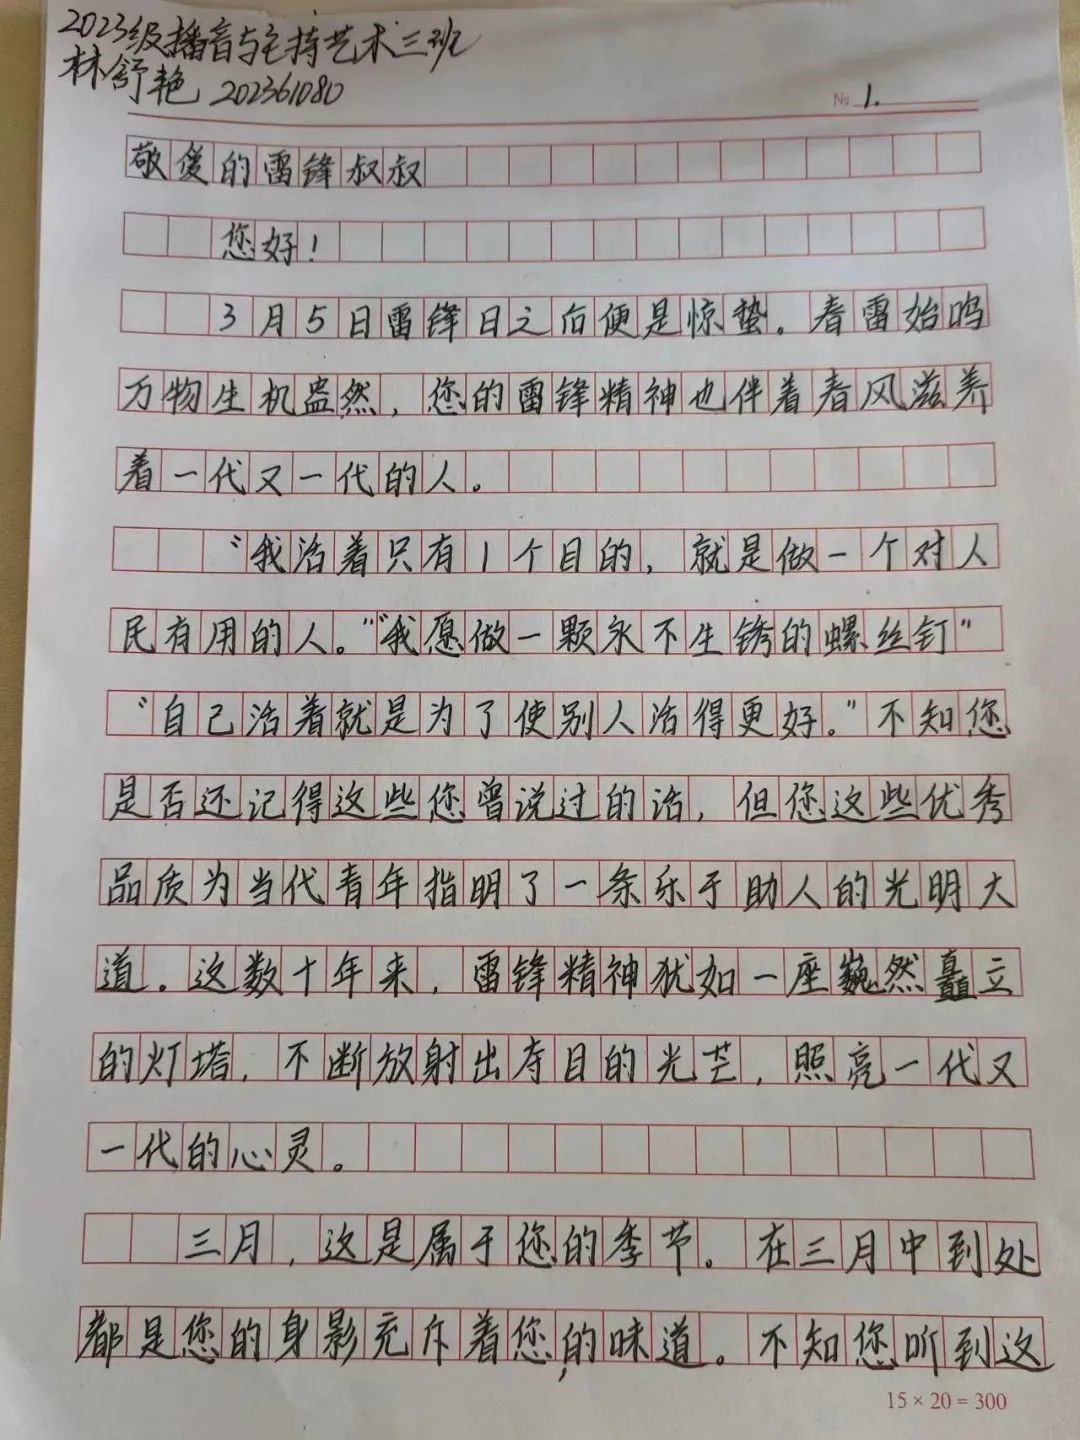 2023级播音与主持艺术三班
林舒艳 202361080
№ 1.
敬爱的雷锋叔叔
您好！
3月5日雷锋日之后便是惊蛰。春雷始鸣
万物生机盎然，您的雷锋精神也伴着春风滋养
着一代又一代的人。
“我活着只有1个目的，就是做一个对人
民有用的人。”“我愿做一颗永不生锈的螺丝钉”
“自己活着就是为了使别人活得更好。”不知您
是否还记得这些您曾说过的话，但您这些优秀
品质为当代青年指明了一条乐于助人的光明大
道。这数十年来，雷锋精神犹如一座巍然矗立
的灯塔，不断放射出夺目的光芒，照亮一代又
一代的心灵。
三月，这是属于您的季节。在三月中到处
都是您的身影充斥着您的味道。不知您听到这
15×20=300